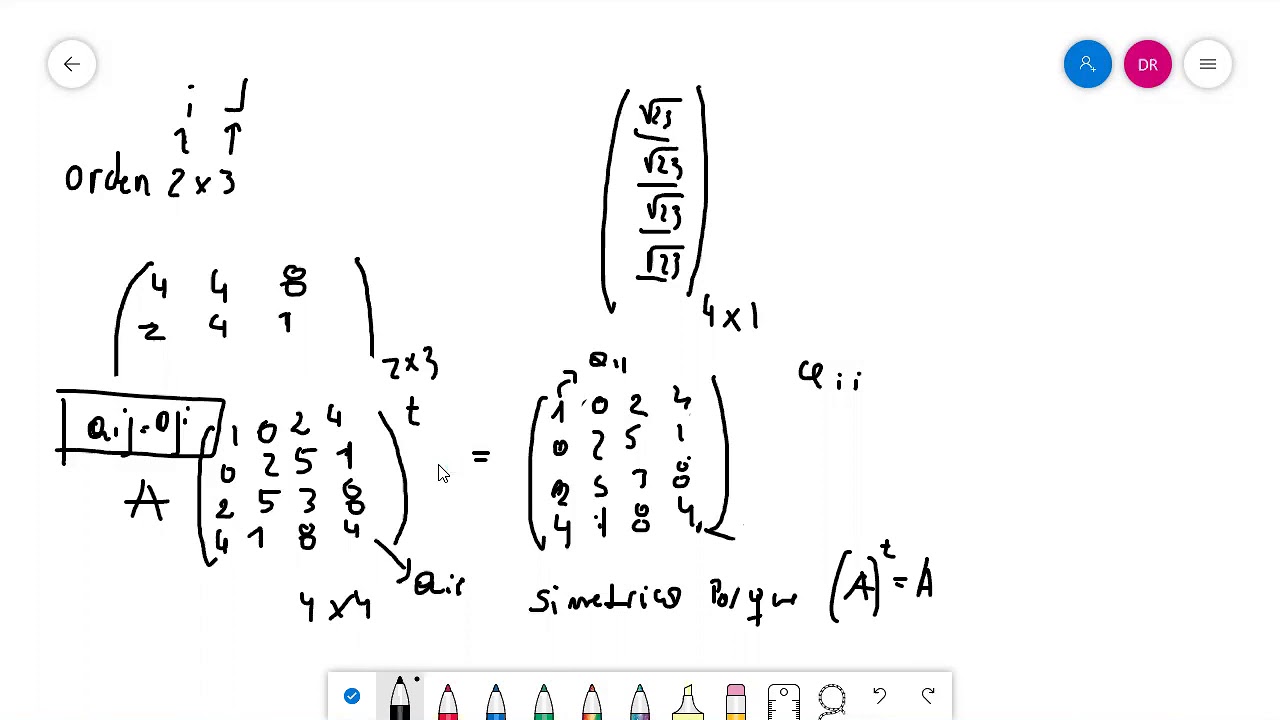 DR
i J
Orden 2 x 3
4 4 8
2 4 1
2x3
√23
√23
√23
√23
4 x 1
aij = aji
A
1 0 2 4
0 2 5 1
2 5 3 8
4 1 8 4
t
aii
4 x 4
=
aii
1 0 2 4
0 2 5 1
2 5 3 8
4 1 8 4
aii
Simetrica Porque (A)t = A